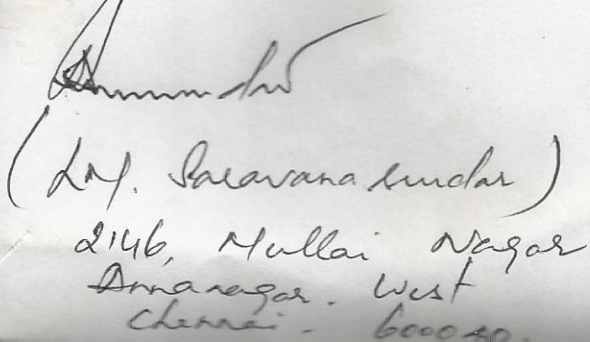 (LM. Saravana kumar)
2146, Mullai Nagar
Annanagar. West
Chennai - 600040.